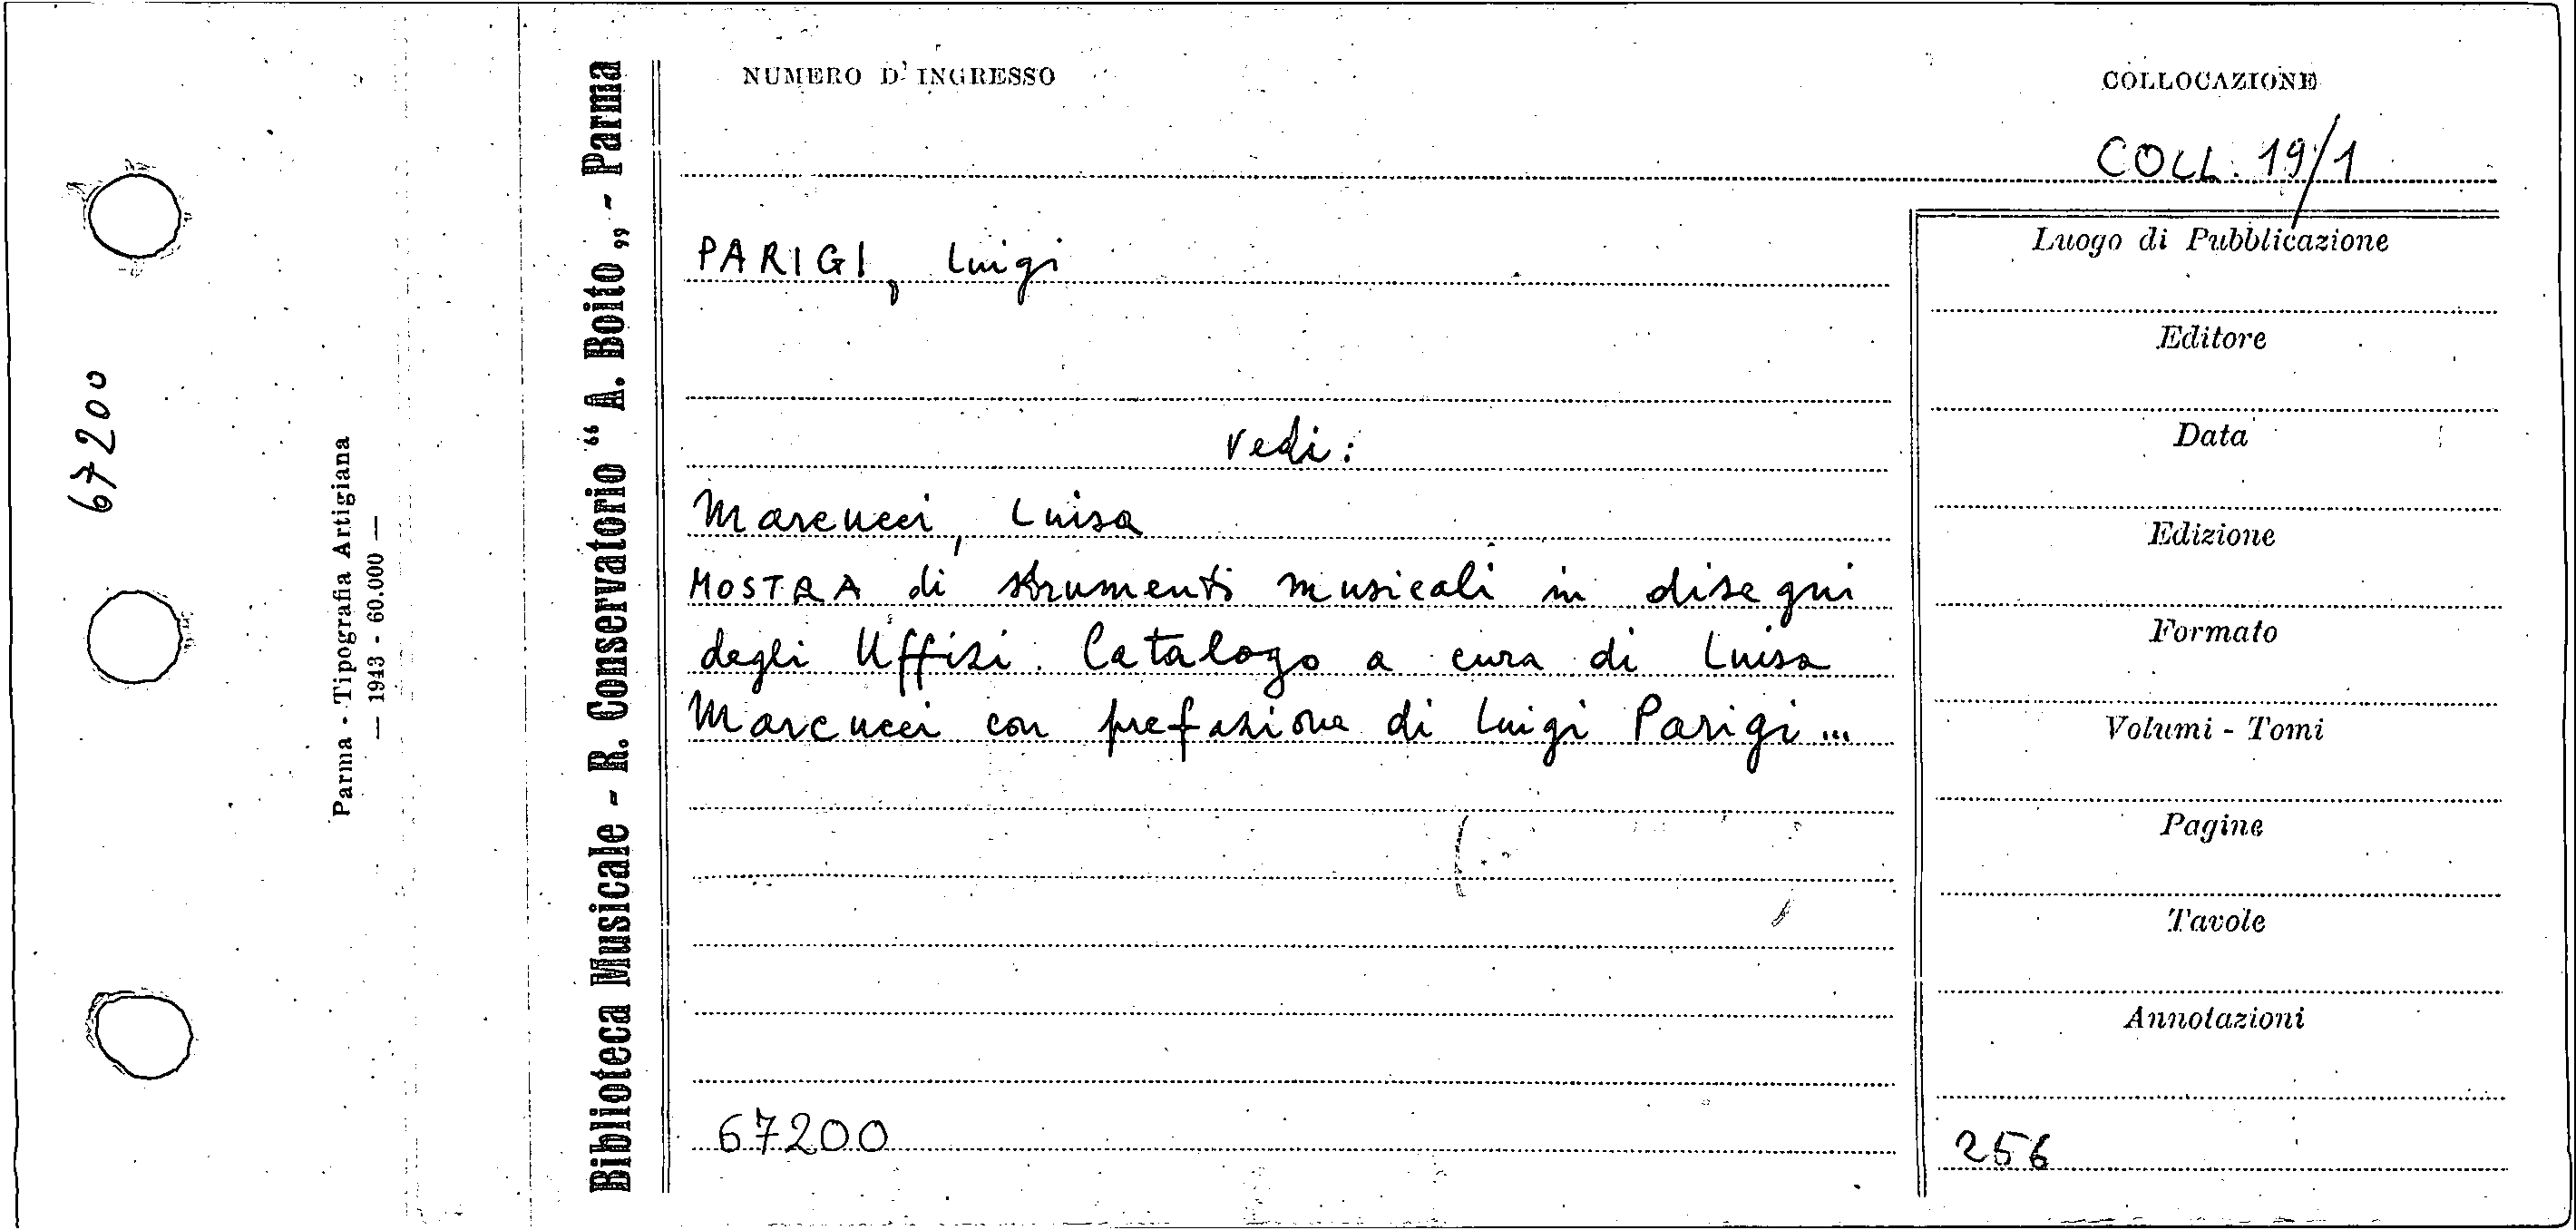 67200
Parma - Tipografia Artigiana
— 1943 - 60.000 —
Biblioteca Musicale - R. Conservatorio “ A. Boito „ - Parma
NUMERO D'INGRESSO
COLLOCAZIONE
COLL. 19/1
PARIGI, Luigi
vedi:
Marcucci, Luisa
MOSTRA di strumenti musicali in disegni
degli Uffizi. Catalogo a cura di Luisa
Marcucci con prefazione di Luigi Parigi...
67200
Luogo di Pubblicazione
Editore
Data
Edizione
Formato
Volumi - Tomi
Pagine
Tavole
Annotazioni
256